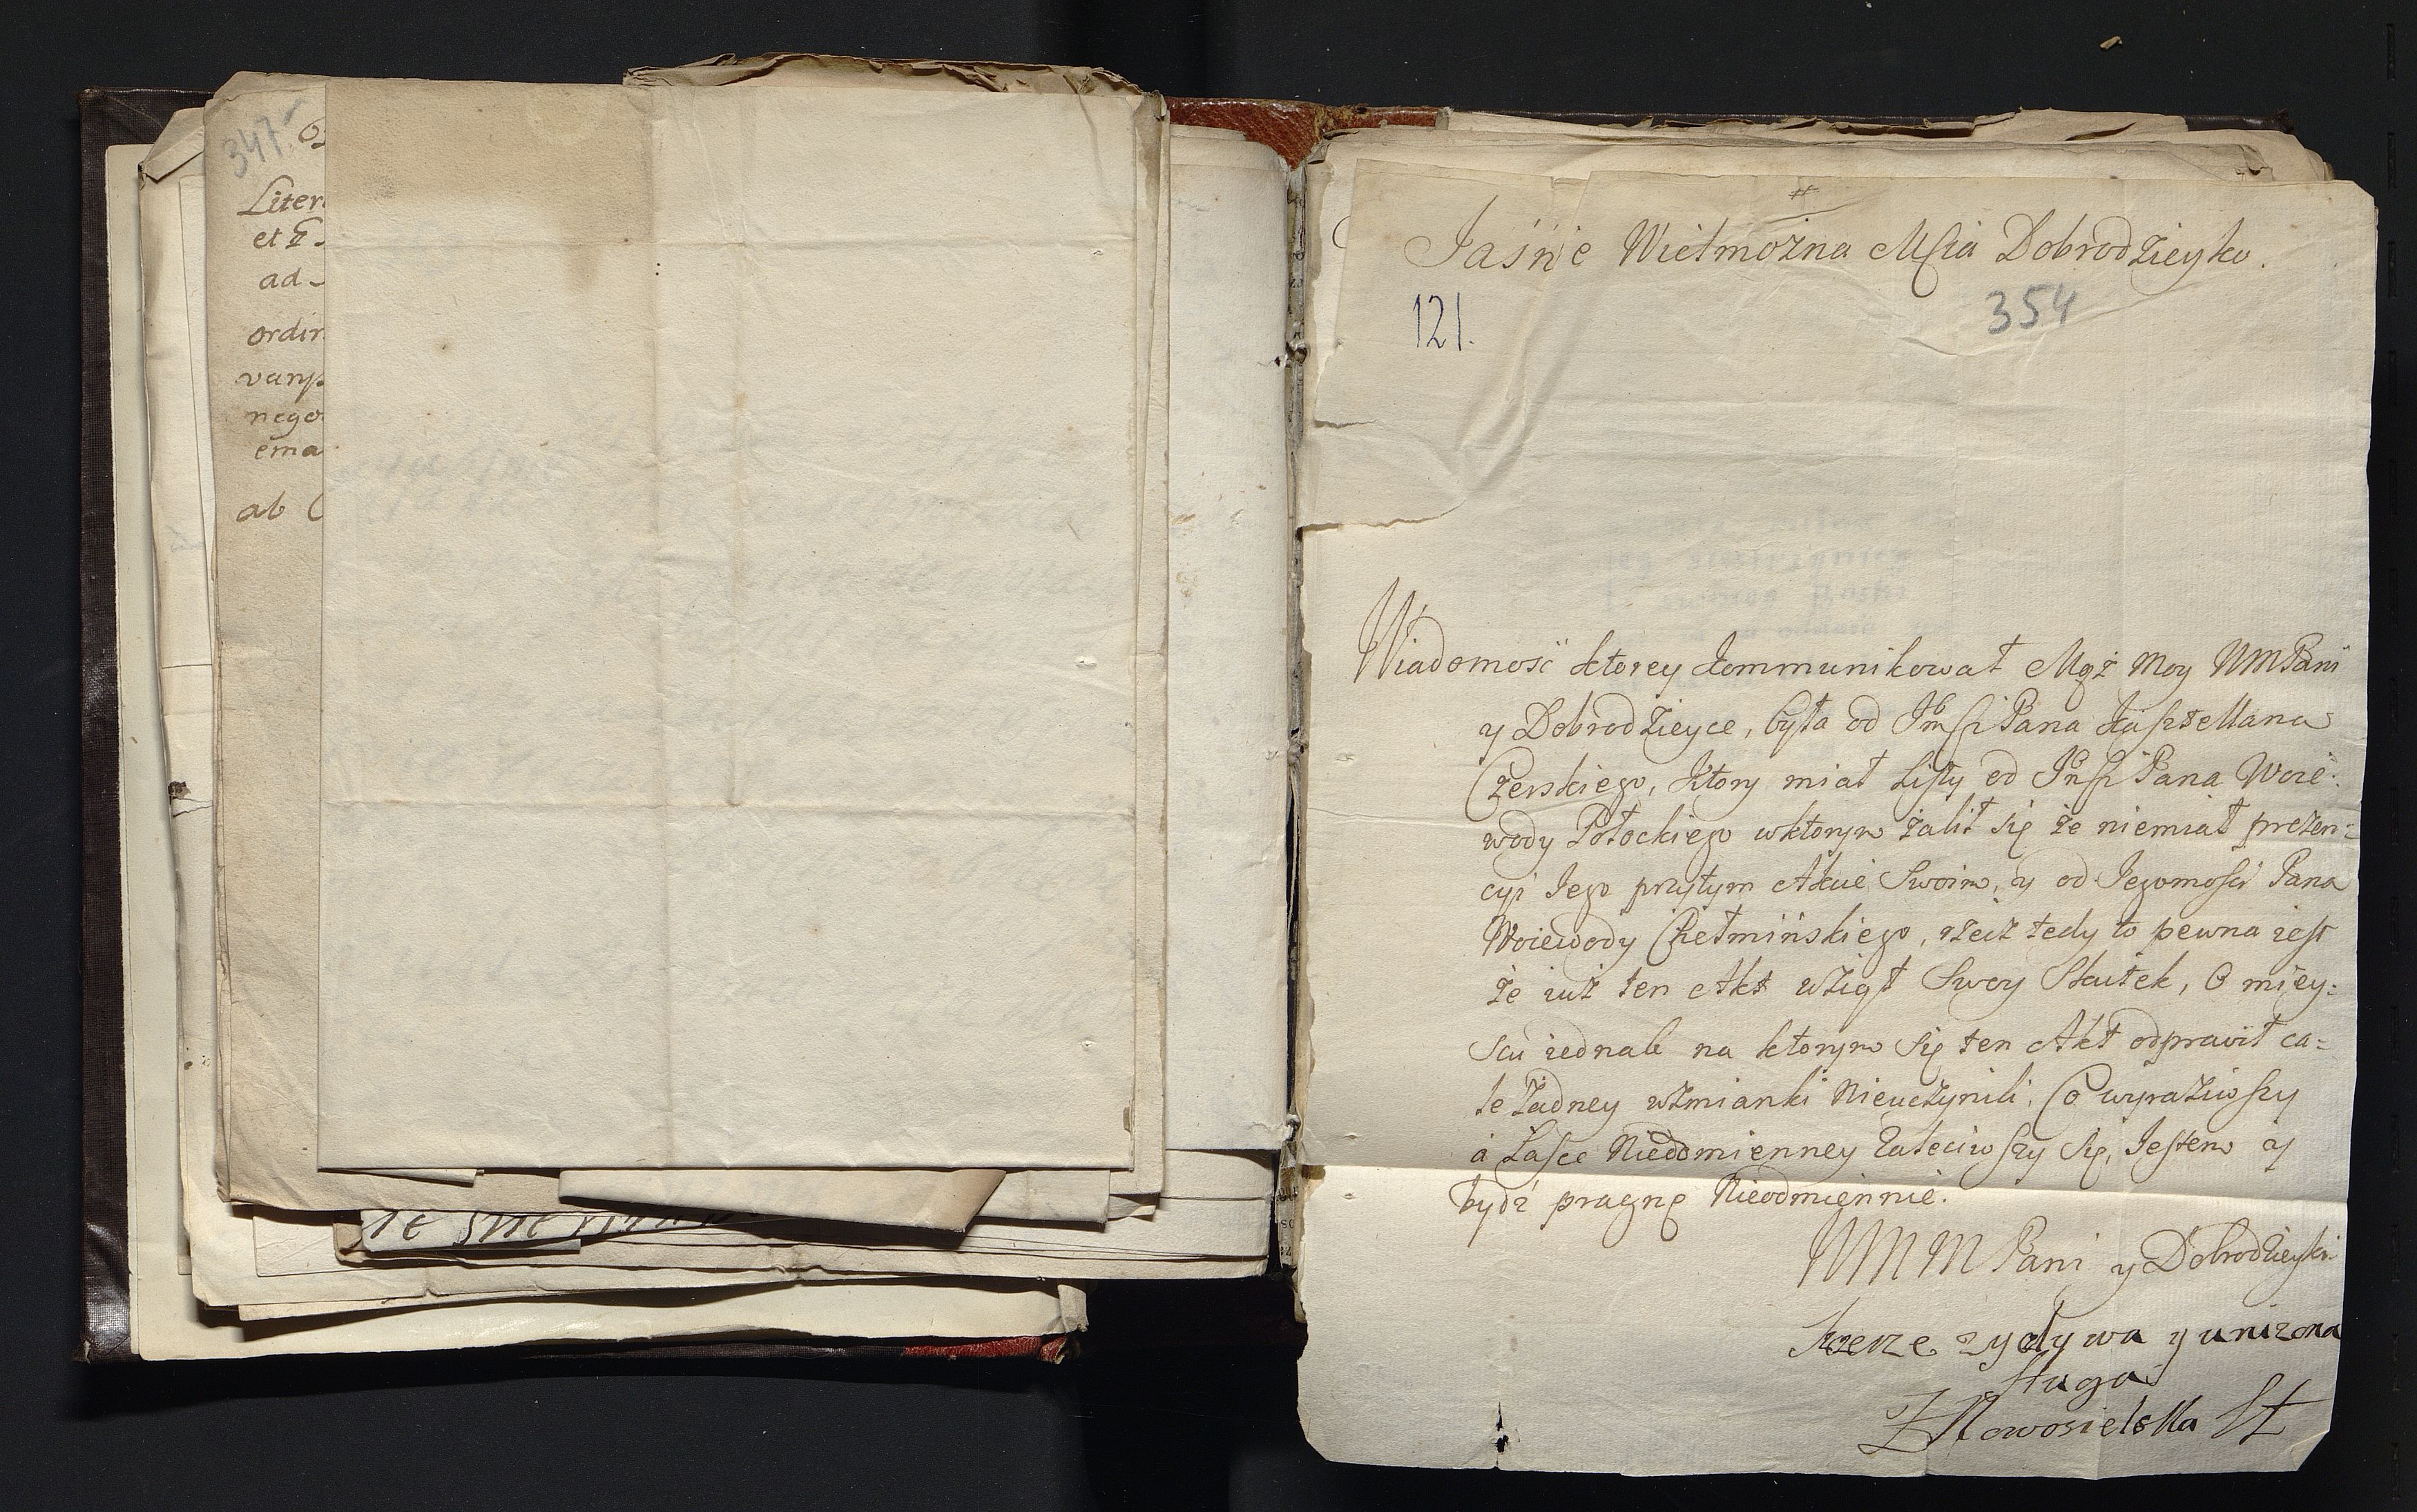 347.
Liter
et
ad
ordin
nego
ema
ab
#
Jaśnie Wielmożna Mſcia Dobrodzieyko.
121.
354
Wiadomość ktorey kommunikował Mąż Moy WMPani
y Dobrodzieyce, była od Jmſci Pana Kasztellana
Czerskiego, ktory miał Listy od Jmſci Pana Woie:
wody Połockiego wktorym żalił się że niemiał prezen:
cyi Iego przytym Akcie Swoim, y od Iegomości Pana
Woiewody Chełmińskiego, rzecz tedy to pewna iest
że iuż ten Akt wziął Swoy Skutek, O miey:
scu iednak na ktorym Się ten Akt odprawił ca=
le żadney wzmianki Nieuczynili. Co wyraziwszy
á Łasce Nieodmienney zaleciwszy się, Iestem y
bydź pragnę Nieodmiennie.
WMM Pani y Dobrodzieyki
szerze zyczlywa y unizona
sługa
Z Nowosielska St